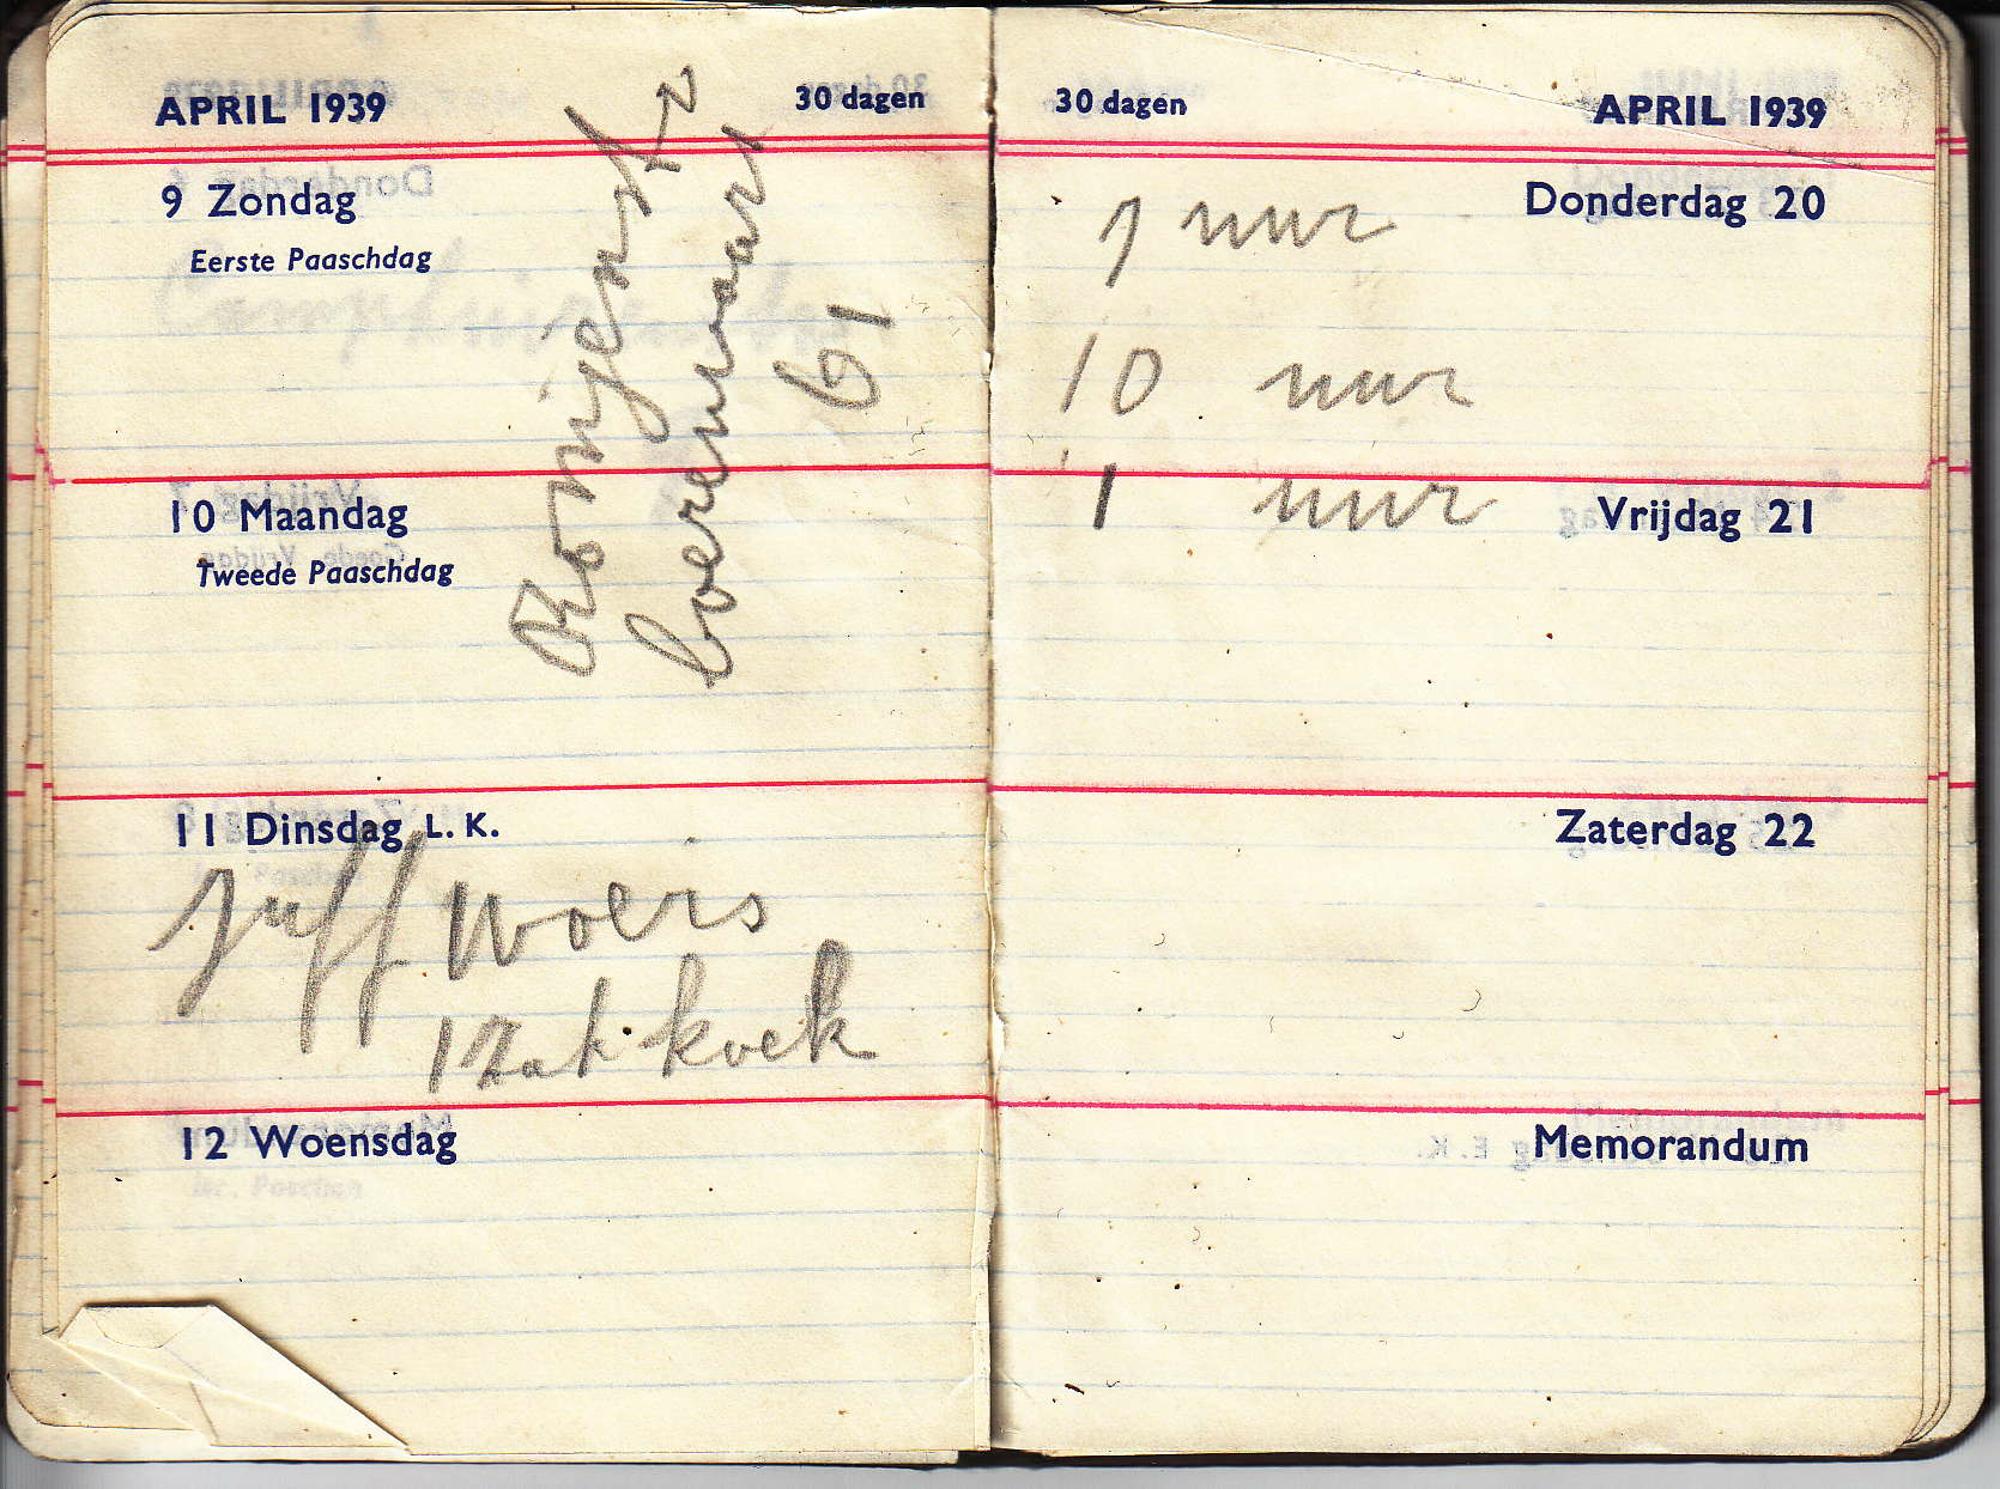 APRIL 1939
30 dagen
9 Zondag
Eerste Paaschdag
boerenvaart
61
10 Maandag
Tweede Paaschdag
11 Dinsdag L. K.
Juff Woers
1 Zak koek
12 Woensdag
30 dagen
APRIL 1939
Donderdag 20
1 uur
10 uur
Vrijdag 21
1 uur
Zaterdag 22
Memorandum